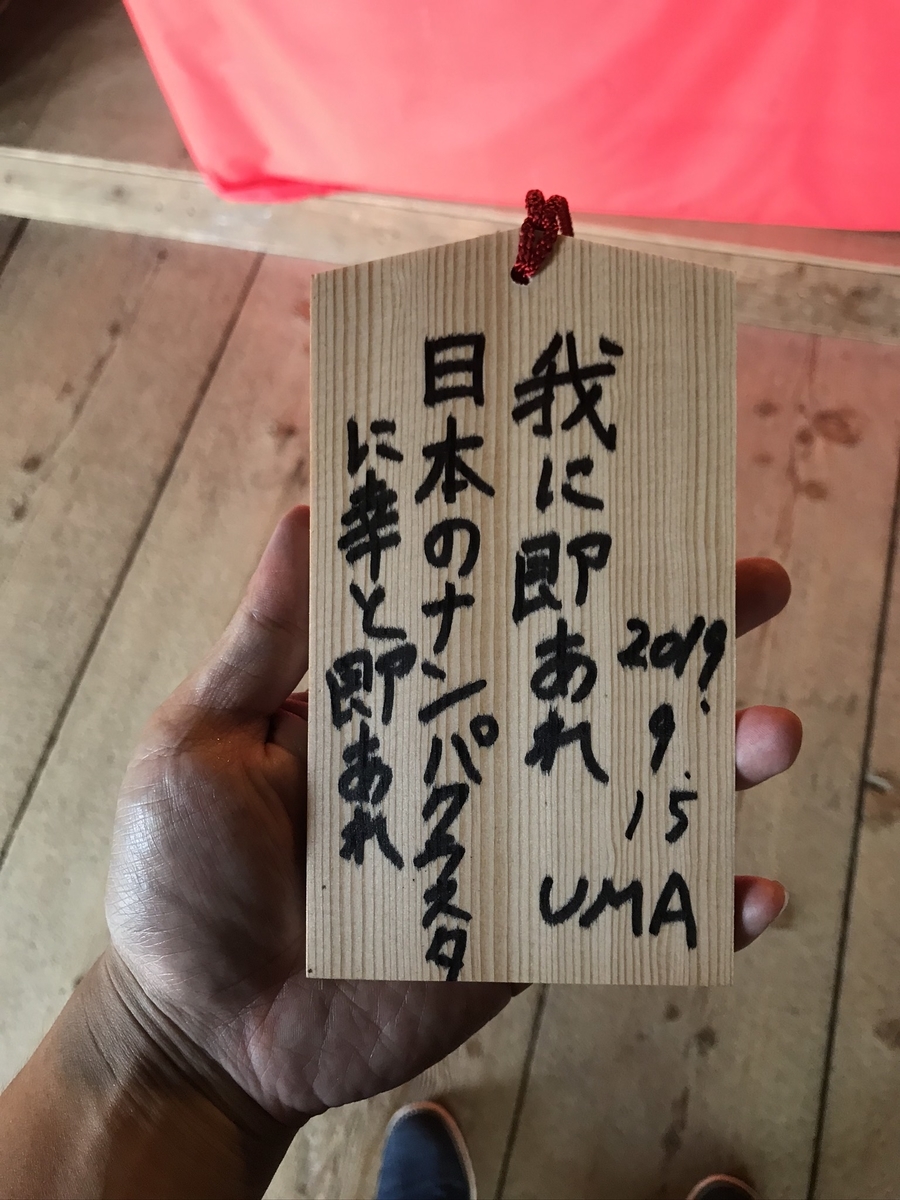 2019.
9.
15
我に即あれ
UMA
日本のナンパクラスタ
に幸と即あれ